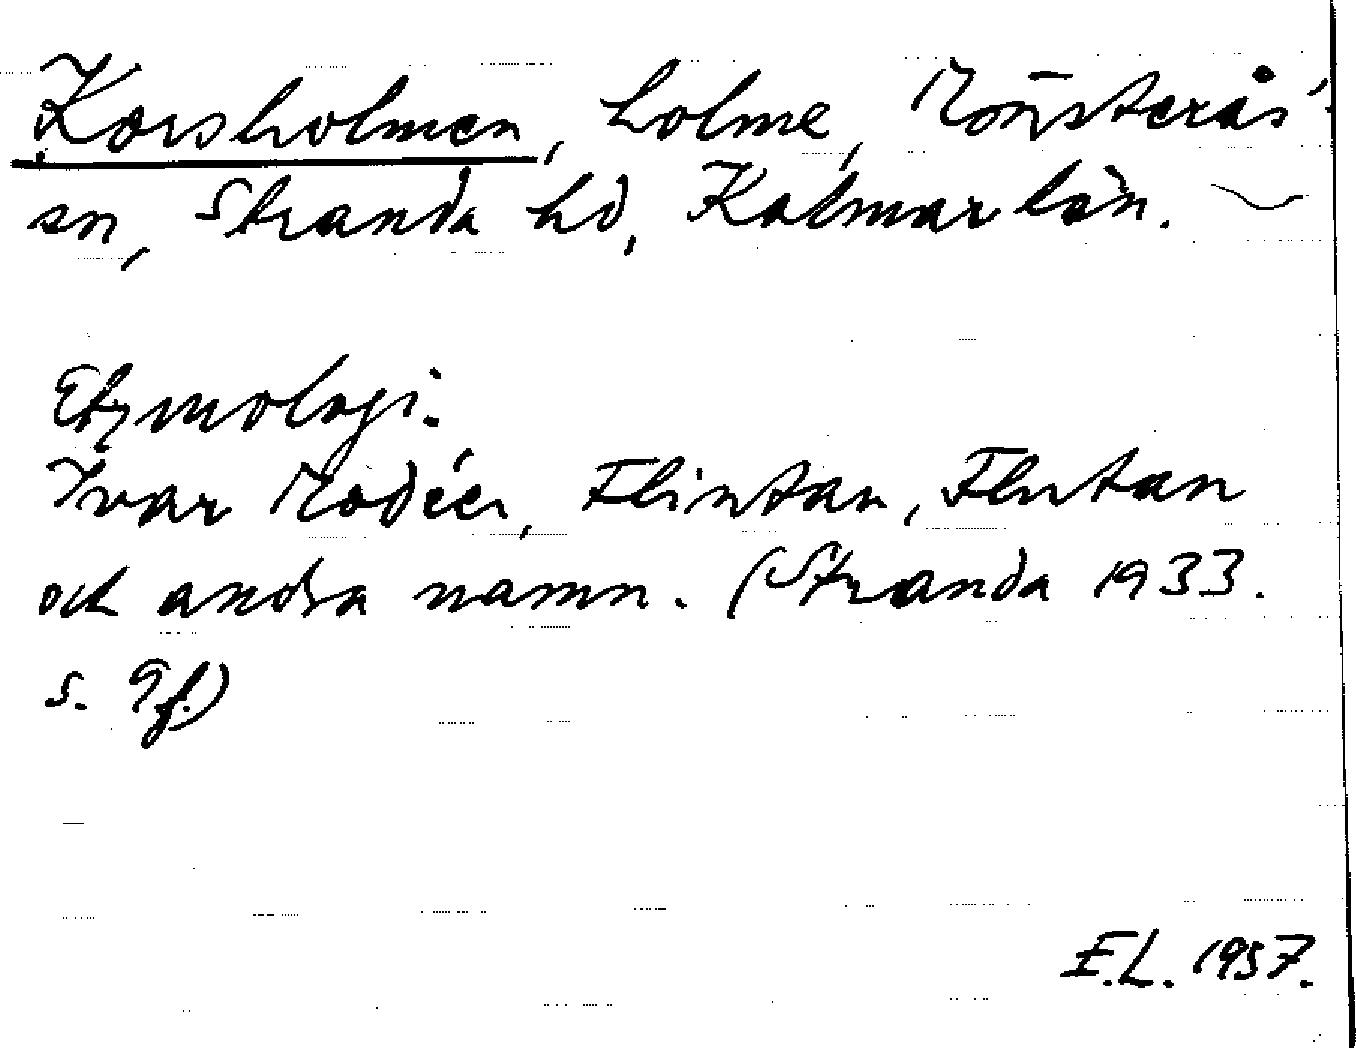 Korsholmen, holme, Mönsterås
sn, Stranda hd, Kalmar län.
Etymologi:
Ivar Modéer, Flintan, Flutan
och andra namn. (Stranda 1933.
s. 9f.)
E.L. 1957.